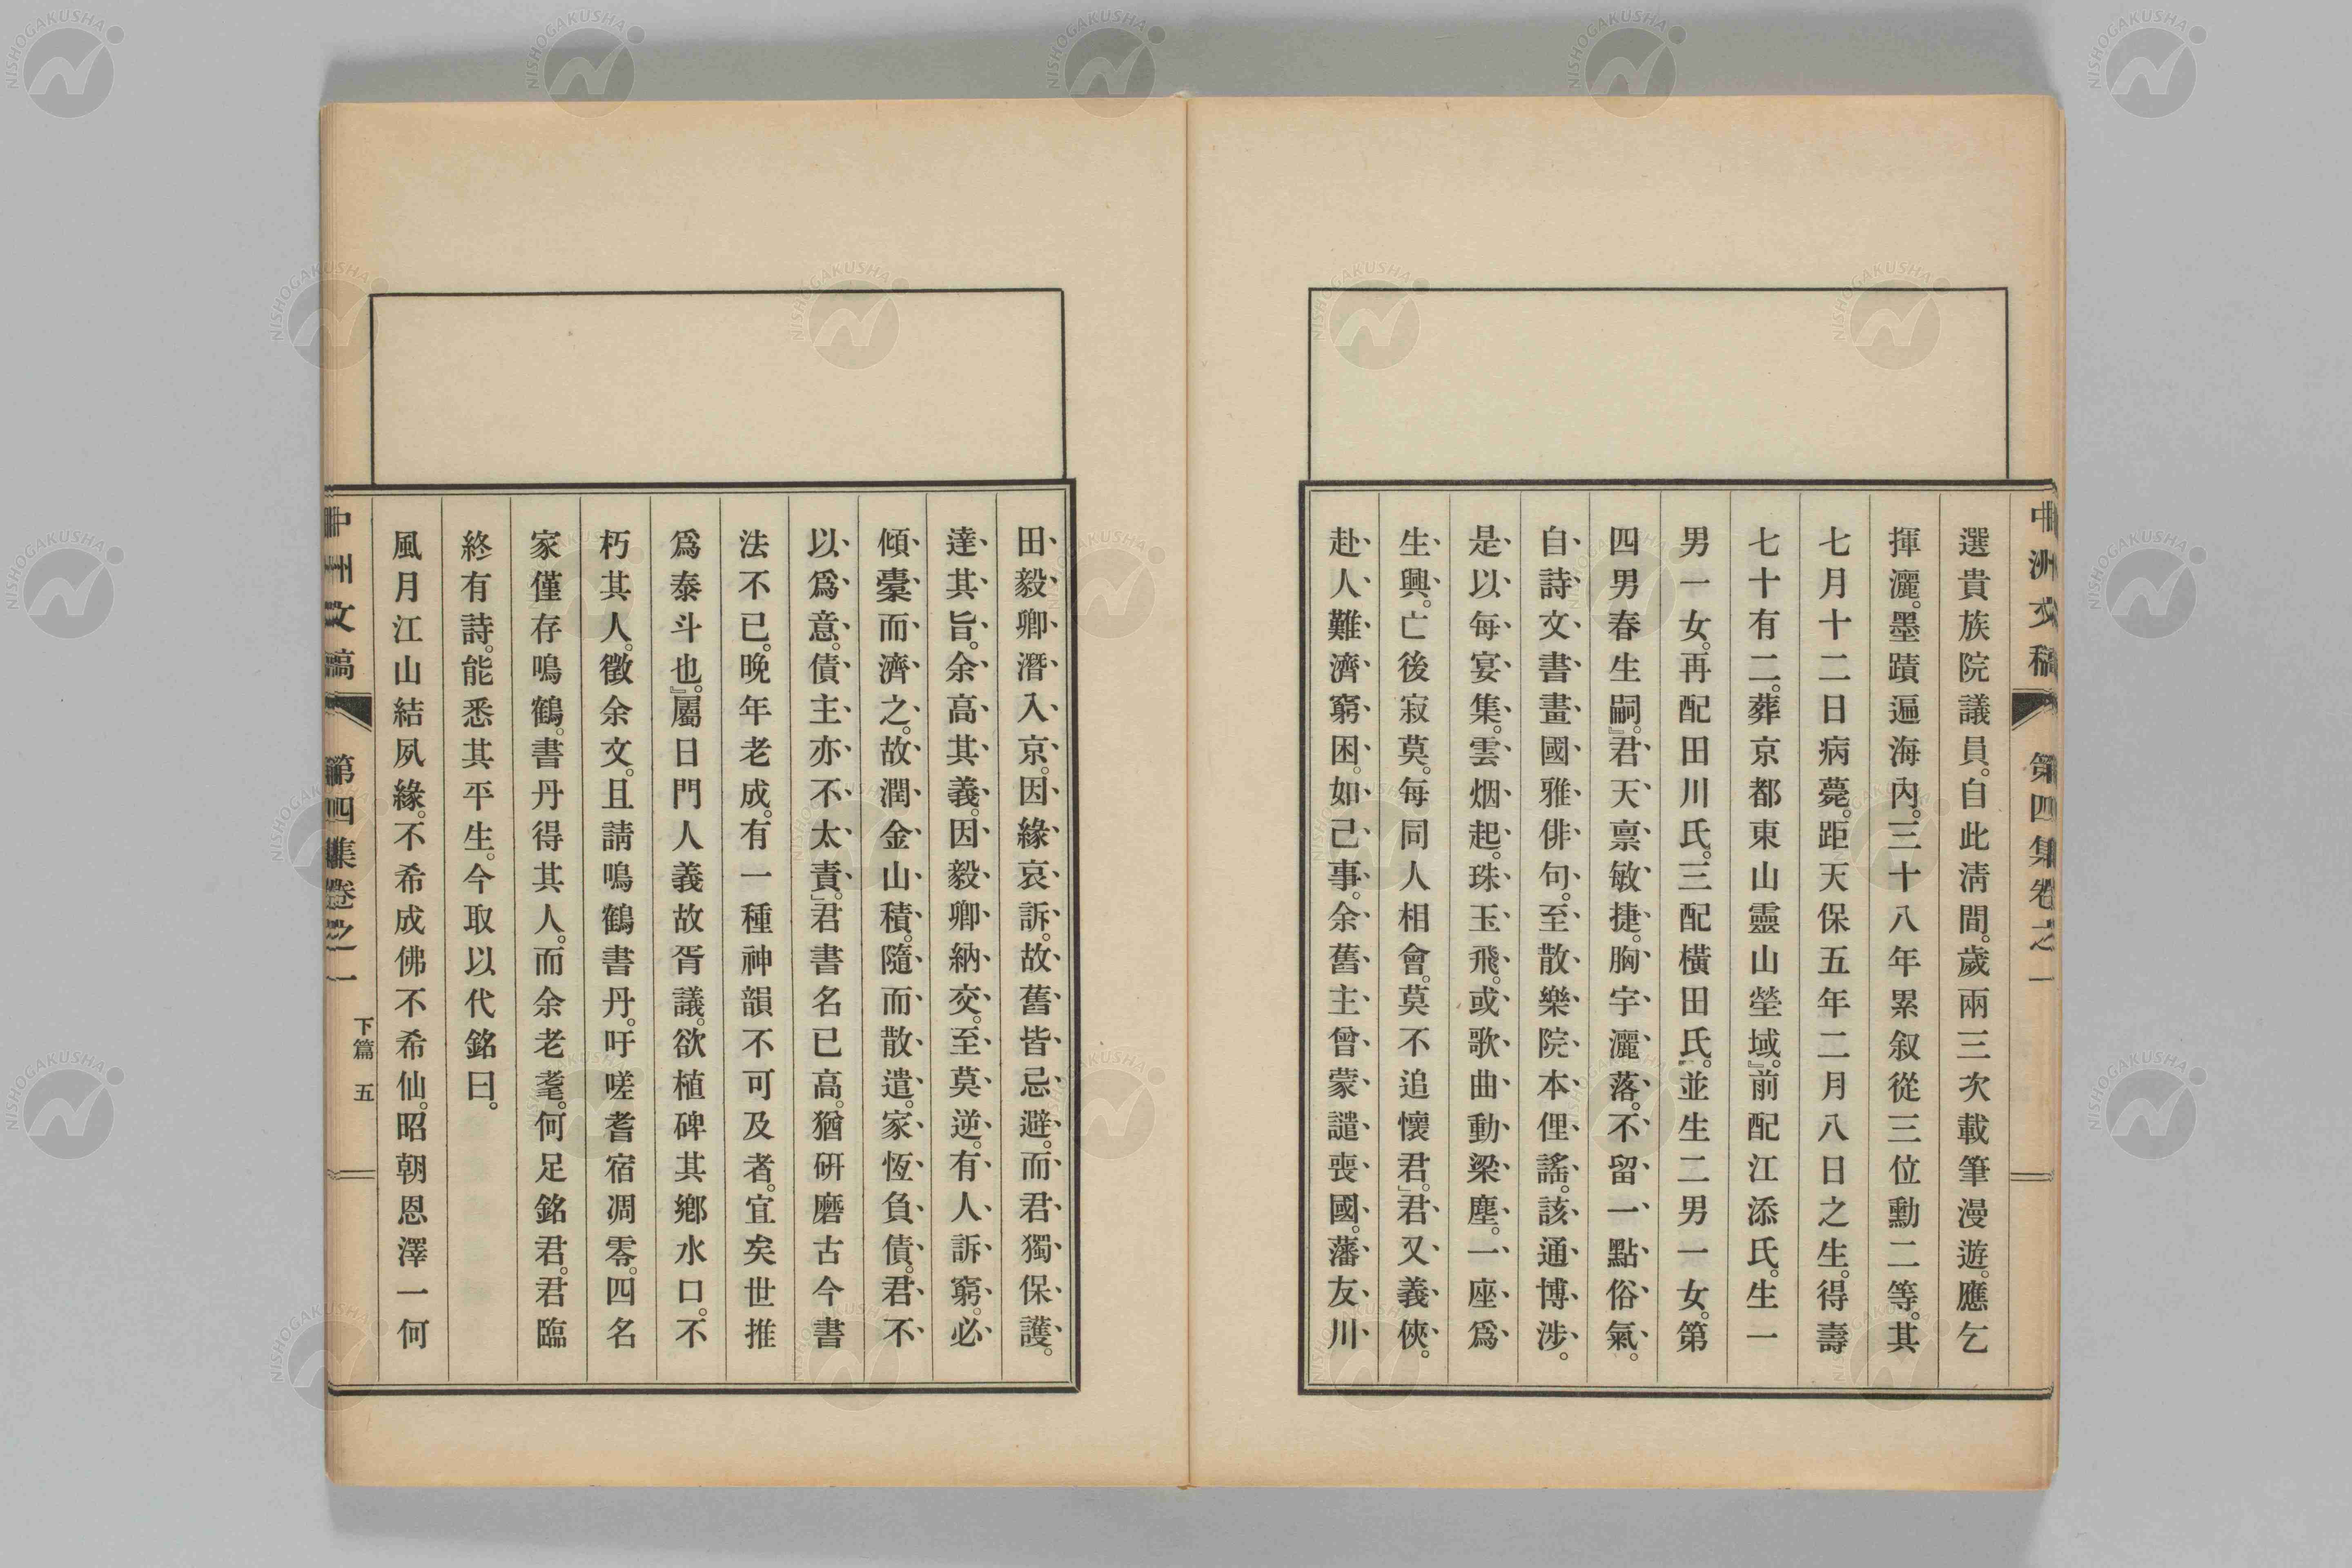 中洲文稿 第四集卷之一
選貴族院議員。自此淸間。歲兩三次載筆漫遊。應乞
揮灑。墨蹟遍海內。三十八年累叙從三位勳二等。其
七月十二日病薨。距天保五年二月八日之生。得壽
七十有二。葬京都東山靈山塋域。』前配江添氏。生一
男一女。再配田川氏。三配橫田氏。並生二男一女。第
四男春生嗣。』君天禀敏捷。胸宇灑落。不留一點俗氣。
自詩文書畫國雅俳句。至散樂院本俚謠。該通博涉。
是以每宴集。雲烟起。珠玉飛。或歌曲動梁塵。一座爲
生興。亡後寂莫。每同人相會。莫不追懷君。」君又義俠。
赴人難濟窮困。如己事。余舊主曾蒙譴喪國。藩友川
田毅卿潛入京。因緣哀訴。故舊皆忌避。而君獨保護。
達其旨。余高其義。因毅卿納交。至莫逆。有人訴窮。必
傾囊而濟之。故潤金山積。隨而散遣。家恆負債。君不
以爲意。債主亦不太責。」君書名已高。猶硏磨古今書
法不已。晚年老成。有一種神韻不可及者。宜矣世推
爲泰斗也。』屬日門人義故胥議。欲植碑其鄕水口。不
朽其人。徵余文。且請鳴鶴書丹。吁嗟耆宿凋零。四名
家僅存鳴鶴。書丹得其人。而余老耄。何足銘君。君臨
終有詩。能悉其平生。今取以代銘曰。
風月江山結夙緣。不希成佛不希仙。昭朝恩澤一何
中洲文稿 第四集卷之一 下篇 五
NISHOGAKUSHA